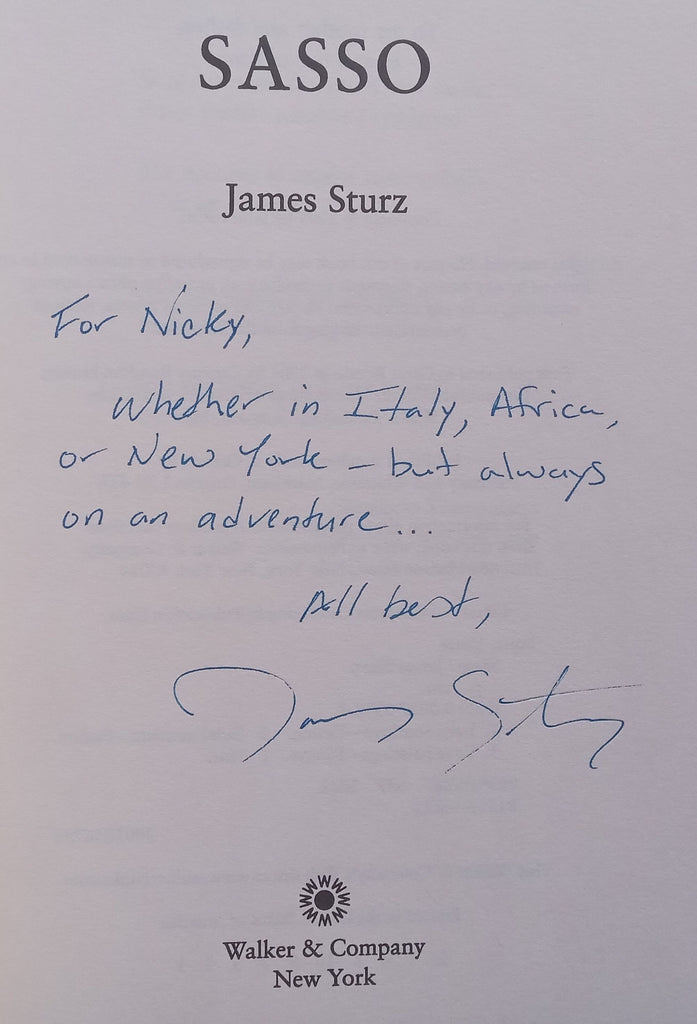 SASSO
James Sturz
For Nicky,
Whether in Italy, Africa,
or New York – but always
on an adventure...
All best,
James Sturz
Walker & Company
New York